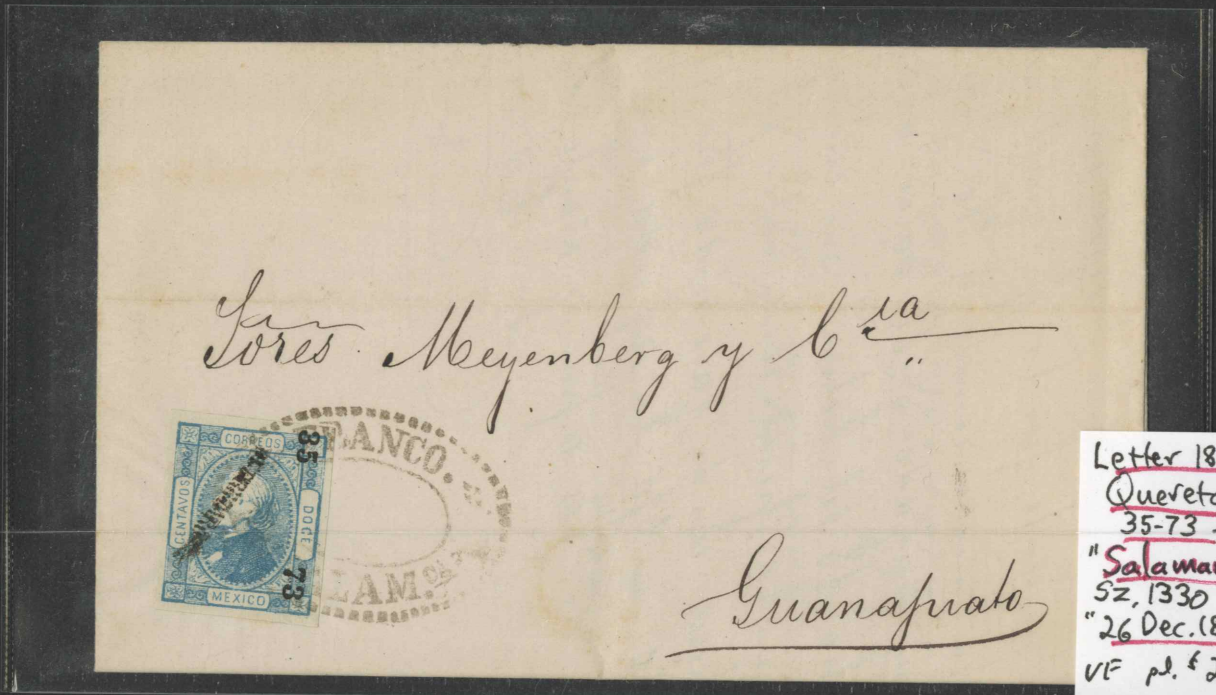 Sores Meyenberg y Cia
Guanajuato
CORREOS
CENTAVOS
DOCE
MEXICO
35 73
FRANCO.
SALAM.ca
Letter 18
Quereta
35-73 -
"Salaman
Sz. 1330
"26 Dec. 18
VF pl. $ 2